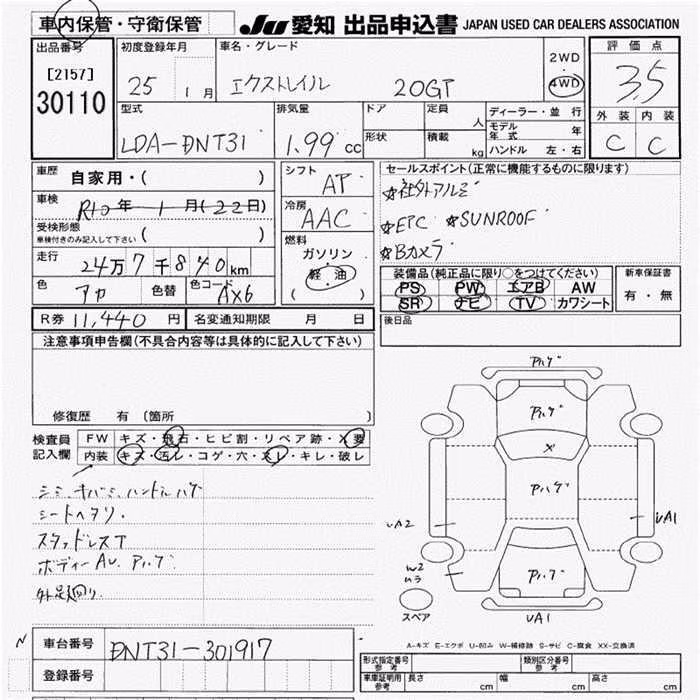 車内保管・守衛保管
JU 愛知 出品申込書 JAPAN USED CAR DEALERS ASSOCIATION
出品番号 初度登録年月 車名・グレード 2WD・4WD 評価点
[2157] 25 1月 エクストレイル 20GT 3.5
30110
型式 排気量 ドア 定員 人 ディーラー・並行 外装 内装
LDA-DNT31 1.99cc 形状 積載 kg モデル年式 年 C C
ハンドル 左・右
車歴 自家用・( )
シフト AT
セールスポイント(正常に機能するものに限ります)
車検 R10年1月(22日)
☆社外アルミ
冷房 AAC
☆ETC ☆SUNROOF
受検形態 車検付きのみ記入して下さい ( )
☆Bカメラ
走行 24万7千840km
燃料 ガソリン・軽・油 ( )
装備品(純正品に限り○をつけてください) 新車保証書
色 アカ 色替 色コード AX6
PS PW エアB AW 有・無
SR ナビ TV カワシート
R券 11,440円 名変通知期限 月 日
後日品
注意事項申告欄(不具合内容等は具体的に記入して下さい)
修復歴 有 〔箇所 〕
検査員記入欄 FW キズ・飛石・ヒビ割・リペア跡・X要
内装 キズ・汚レ・コゲ・穴・スレ・キレ・破レ
シミ、キバミ、ハンドルハゲ
シートヘタリ.
スタッドレスT
ボディー AU. アハゲ
外足廻り.
アハゲ
アハゲ
X
アハゲ
UA2
UA1
W2
ハラ
アハゲ
スペア
UA1
A-キズ E-エクボ U-凹み W-補修跡 S-サビ C-腐食 XX-交換済
N 車台番号 DNT31-301917
登録番号
形式指定番号 参考 類別区分番号 参考
車庫証明用 参考 長さ cm 幅 cm 高さ cm